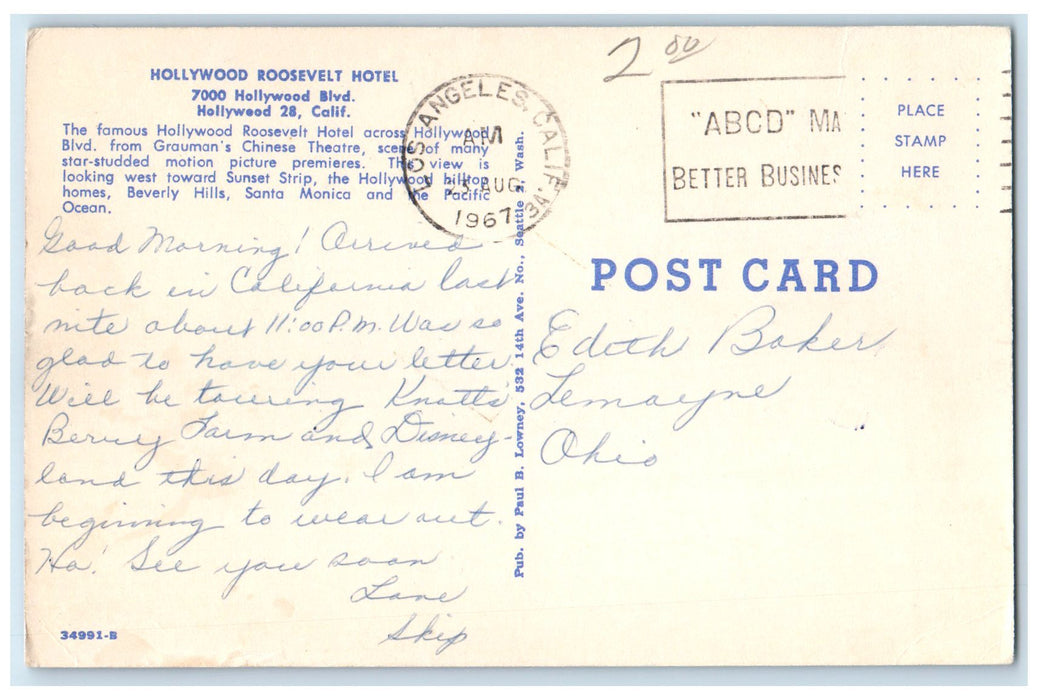 HOLLYWOOD ROOSEVELT HOTEL
7000 Hollywood Blvd.
Hollywood 28, Calif.
The famous Hollywood Roosevelt Hotel across Hollywood
Blvd. from Grauman's Chinese Theatre, scene of many
star-studded motion picture premieres. This view is
looking west toward Sunset Strip, the Hollywood hilltop
homes, Beverly Hills, Santa Monica and the Pacific
Ocean.
Good Morning! Arrived
back in California last
nite about 11:00 P.M. Was so
glad to have your letter
Will be touring Knotts
Berry Farm and Disney-
land this day. I am
beginning to wear out.
Ha! See you soon
Love
Skip
34991-B
Pub. by Paul B. Lowney, 532 14th Ave. No., Seattle 2, Wash.
LOS ANGELES, CALIF.
AM
23 AUG
1967
3A
2 00
"ABCD" MA
BETTER BUSINES
PLACE
STAMP
HERE
POST CARD
Edith Baker
Lemoyne
Ohio